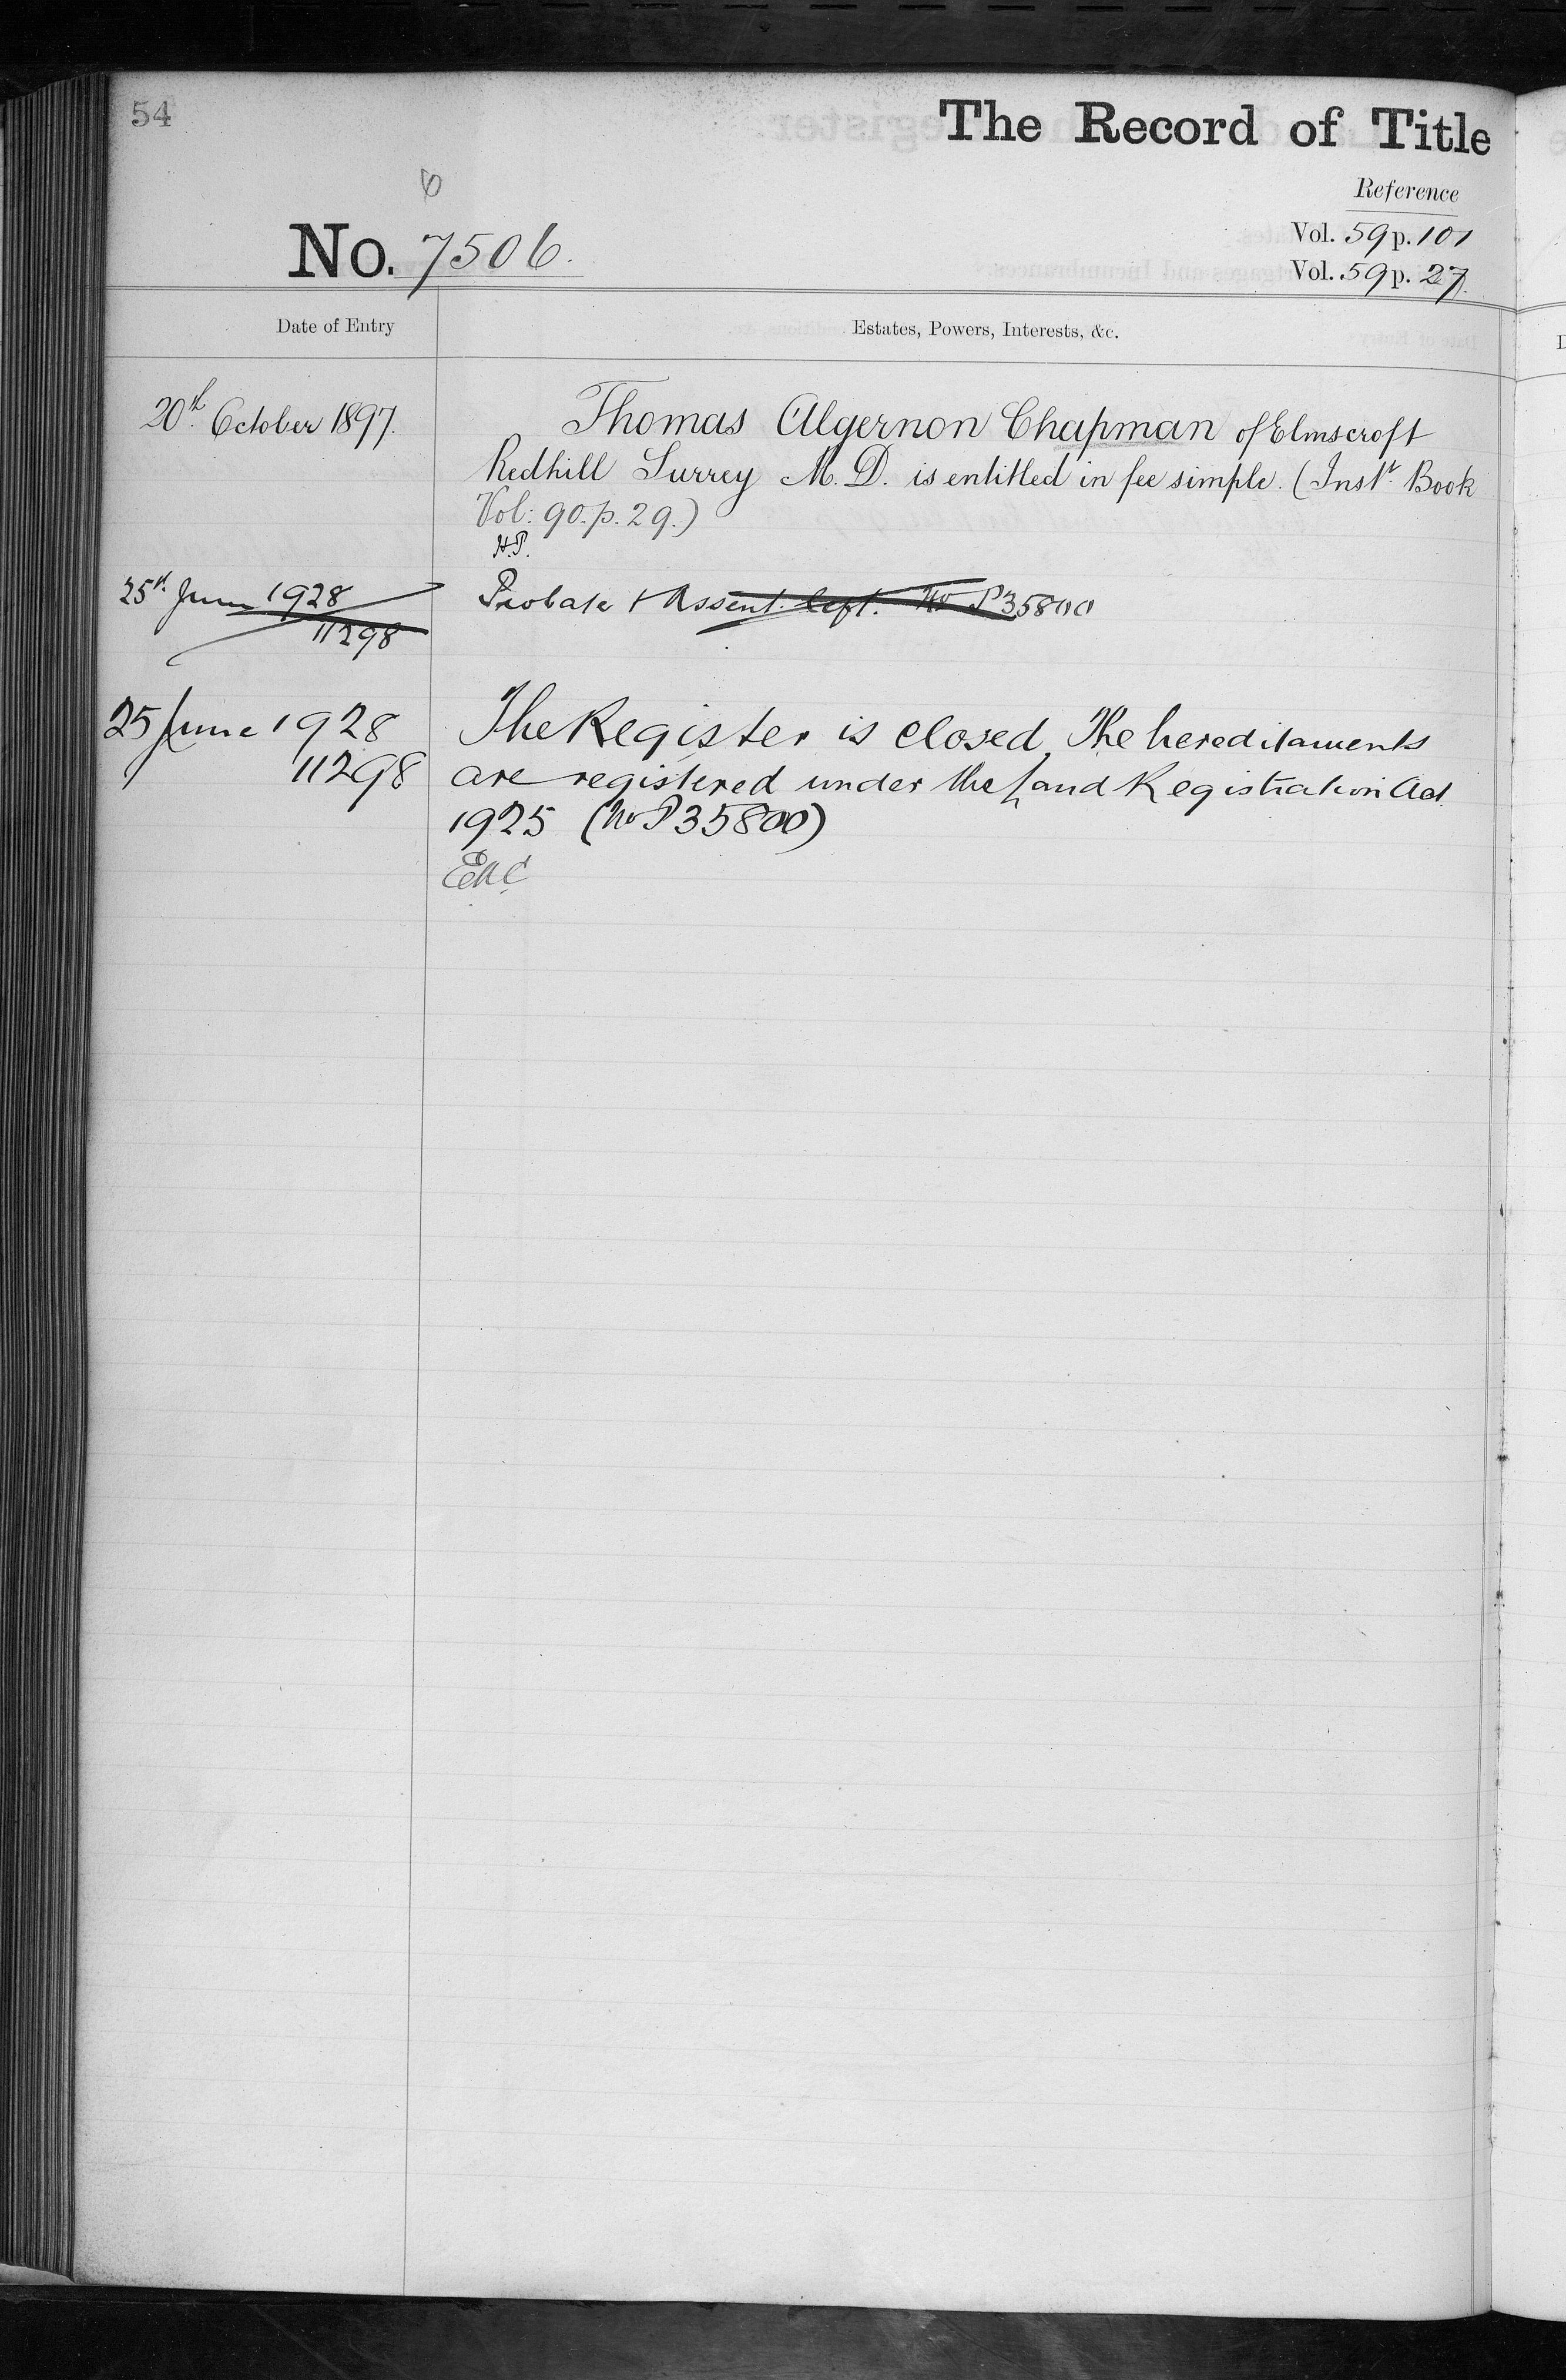 54
The Record of Title
6
Reference
No. 7506.
Vol. 59 p. 101
Vol. 59 p. 27
Date of Entry
Estates, Powers, Interests, &c.
20th October 1897.
Thomas Algernon Chapman of Elmscroft
Redhill Surrey M.D. is entitled in fee simple. (Instr. Book
Vol: 90. p. 29.)
H.P.
25th June 1928
11298
Probate & Assent left. No P35800
25 June 1928
11298
The Register is closed, The hereditaments
are registered under the Land Registration Act
1925 (No P35800)